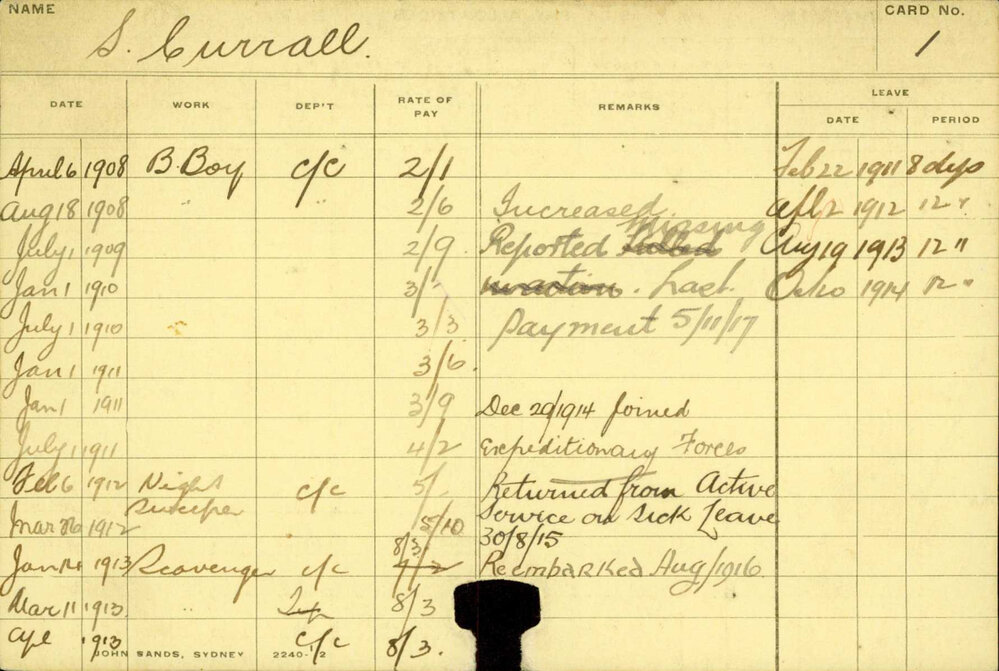 NAME S. Currall. CARD No. 1
DATE WORK DEP'T RATE OF PAY REMARKS LEAVE
DATE PERIOD
April 6 1908 B. Boy c/c 2/1 Feb 22 1911 8 days
Aug 18 1908 " " 2/6 Increased. Apl 2 1912 12 "
July 1 1909 2/9 Reported Killed Missing Aug 19 1913 12 "
Jan 1 1910 3/- in action. Last. Oct 20 1914 12 "
July 1 1910 3/3 Payment 5/11/17
Jan 1 1911 3/6.
Jan 1 1911 3/9 Dec 29/1914 Joined
July 1 1911 4/2 Expeditionary Forces
Feb 6 1912 Night c/c 5/- Returned from Active
Sweeper
Mar 26 1912 5/10 Service on Sick Leave
8/3. 30/8/15
Jan 14 1913 Scavenger c/c 7/2 Reembarked Aug/1916
Mar 11 1913 " 8/3
Apl 1913 c/c 8/3.
JOHN SANDS, SYDNEY 2240-12